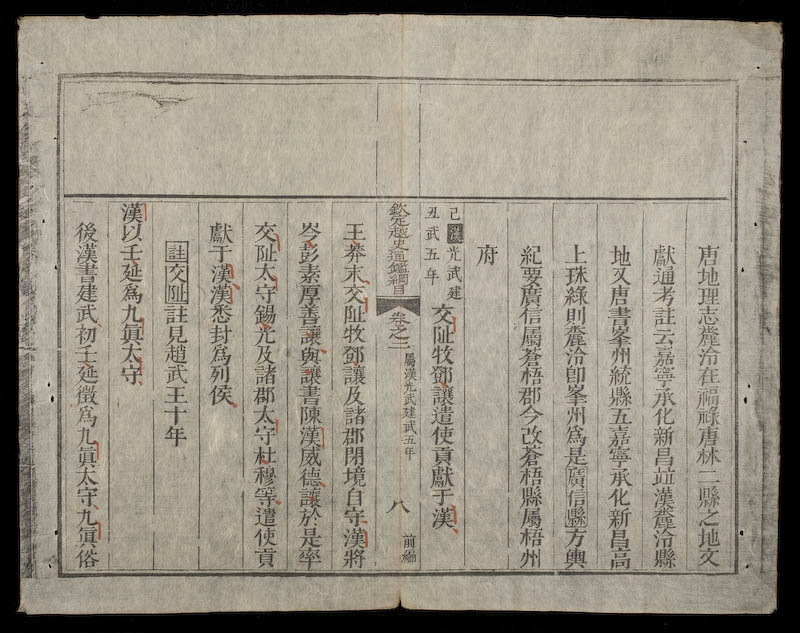 唐地理志麊泠在福祿唐林二縣之地文
獻通考註云嘉寧承化新昌竝漢麊泠縣
地又唐書峯州統縣五嘉寧承化新昌高
上珠綠則麊泠卽峯州爲是廣信縣方輿
紀要廣信屬蒼梧郡今改蒼梧縣屬梧州
府
己漢光武建
丑武五年
交阯牧鄧讓遣使貢獻于漢
欽定越史通鑑綱目
卷之二
屬漢光武建武五年
八
前編
王莽末交阯牧鄧讓及諸郡閉境自守漢將
岑彭素厚善讓與讓書陳漢威德讓於是率
交阯太守錫光及諸郡太守杜穆等遣使貢
獻于漢漢悉封爲列侯
註交阯註見趙武王十年
漢以壬延爲九眞太守
後漢書建武初壬延徵爲九眞太守九眞俗